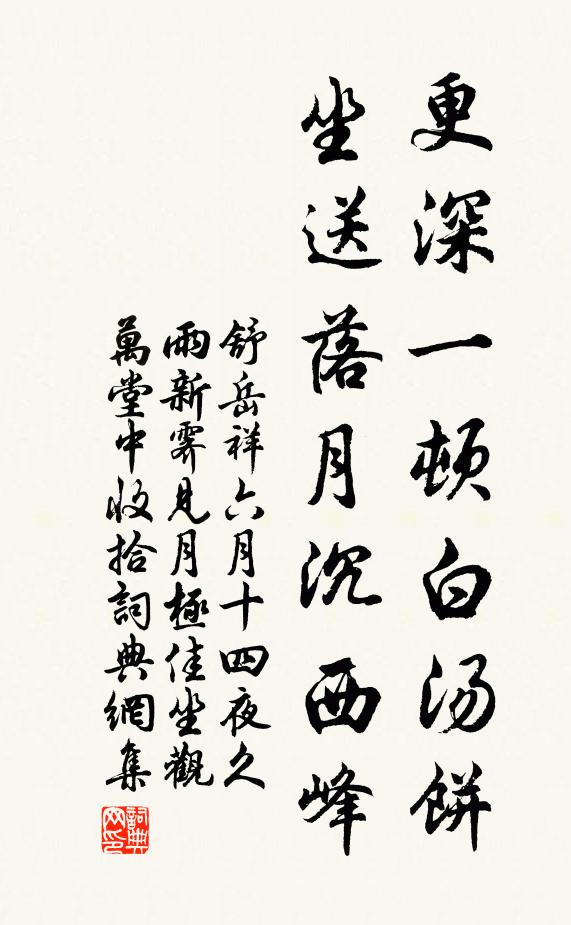 更深一顿白汤餅
坐送落月沉西峰
舒岳祥六月十四夜久
雨新霽見月極佳坐觀
萬堂中收拾詞典網集
詞典网印